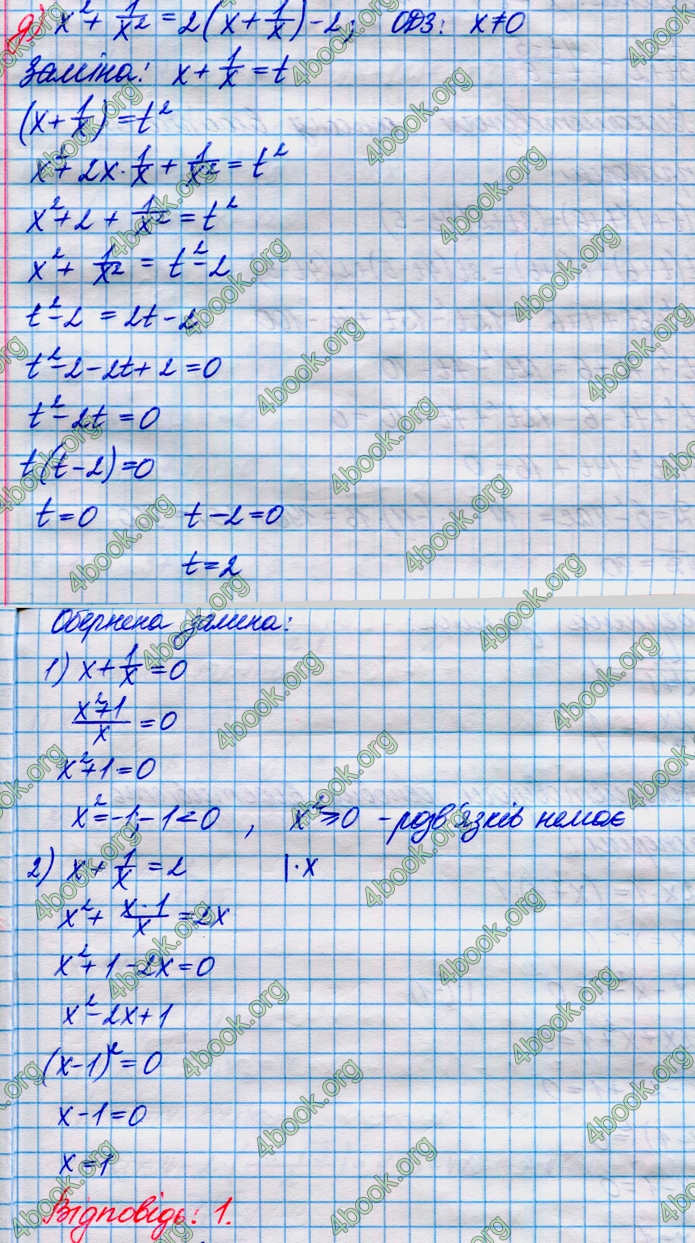 д) x² + 1/x² = 2(x + 1/x) - 2; ОДЗ: x≠0
Заміна: x + 1/x = t
(x + 1/x) = t²
x² + 2x · 1/x + 1/x² = t²
x² + 2 + 1/x² = t²
x² + 1/x² = t² - 2
t² - 2 = 2t - 2
t² - 2 - 2t + 2 = 0
t² - 2t = 0
t(t - 2) = 0
t = 0 t - 2 = 0
t = 2
Обернена заміна:
1) x + 1/x = 0
(x² + 1)/x = 0
x² + 1 = 0
x² = -1; -1 < 0 , x² ≥ 0 - розв'язків немає
2) x + 1/x = 2 | · x
x² + (x · 1)/x = 2x
x² + 1 - 2x = 0
x² - 2x + 1
(x - 1)² = 0
x - 1 = 0
x = 1
Відповідь: 1.
4book.org